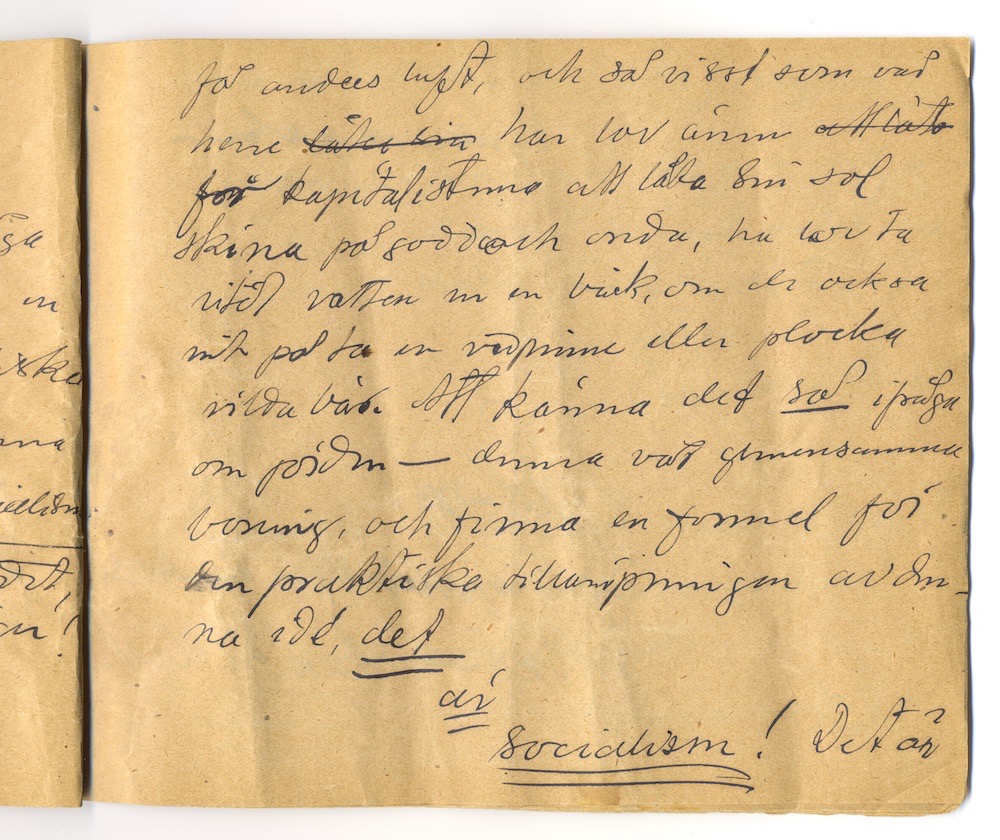 få andas luft, och så visst som vår
herre låter sin har lov ännu att låta
för kapitalisterna att låta sin sol
skina på goda och onda, ha lov ta
vårt vatten ur en bäck, om de också
inte på ta en vedpinne eller plocka
vilda bär. Att känna det så ifråga
om jorden — denna vår gemensamma
boning, och finna en formel för
den praktiska tillämpningen av den-
na idé, det
är
socialism! Det är
iga
en
iska
nna
det,